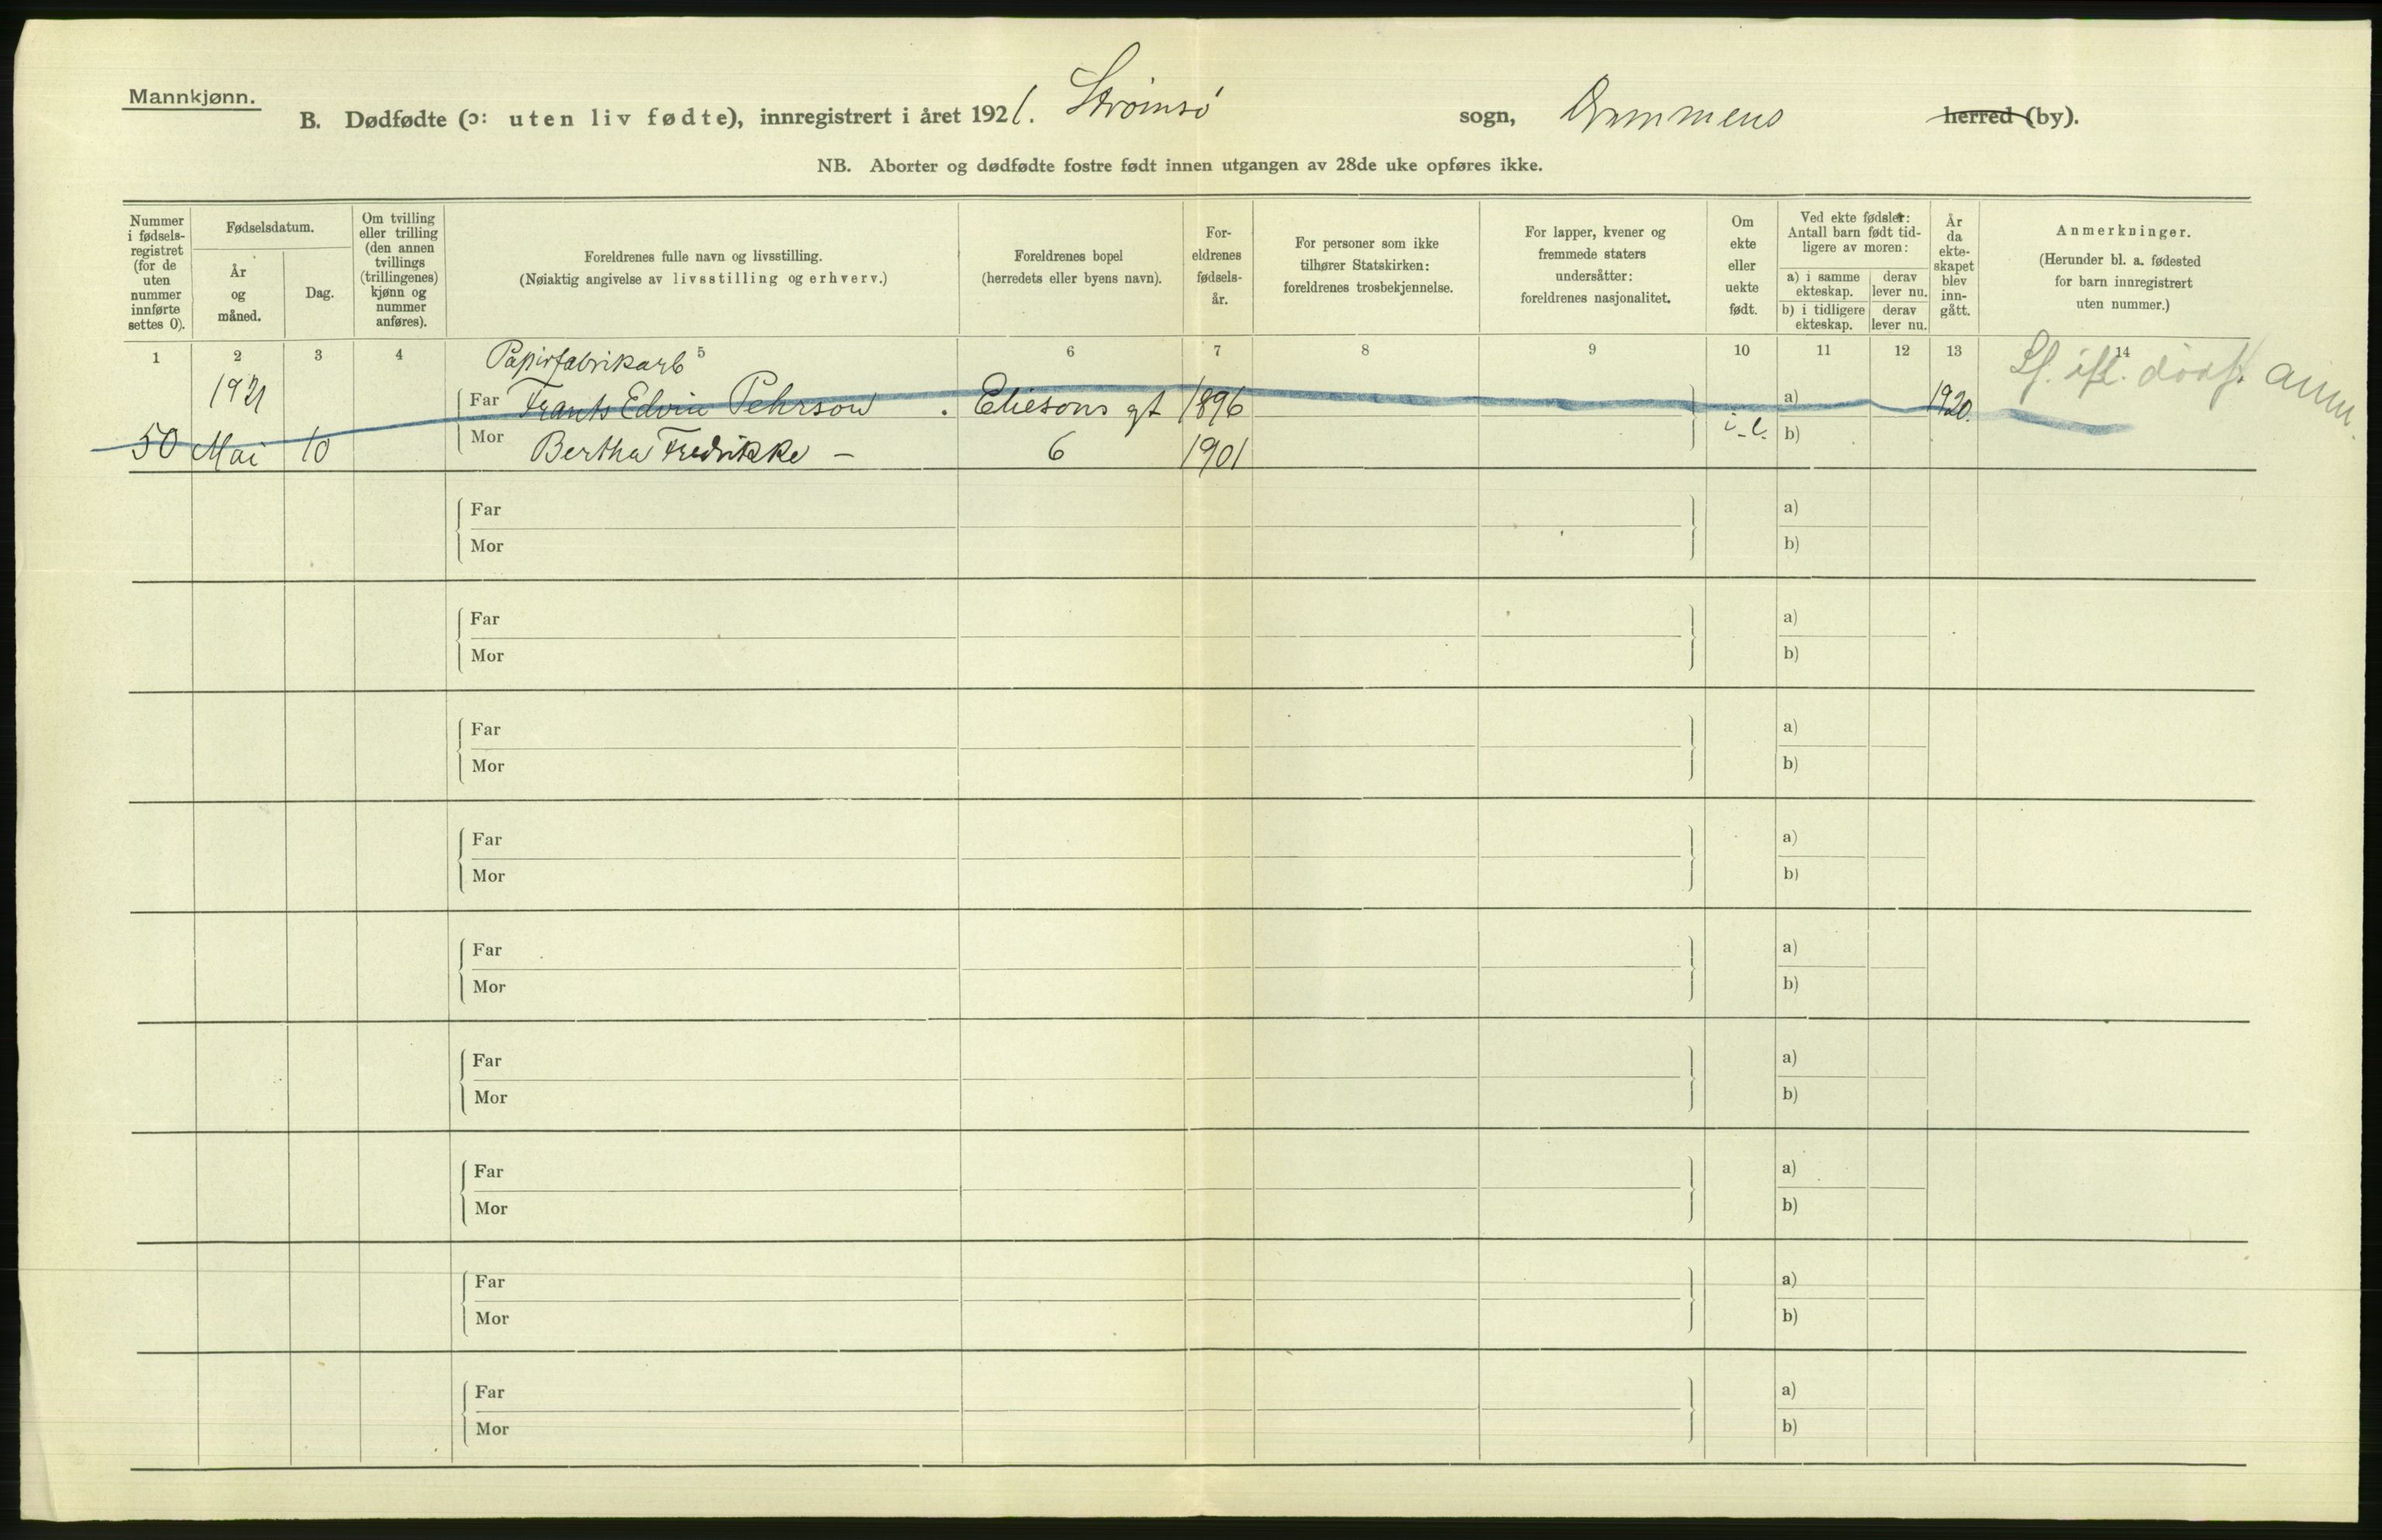 Mannkjønn.
B. Dødfødte (ɔ: uten liv fødte), innregistrert i året 1921. Strømsø sogn, Drammens herred (by).
NB. Aborter og dødfødte fostre født innen utgangen av 28de uke opføres ikke.
Nummer i fødselsregistret (for de uten nummer innførte settes 0).
Fødselsdatum.
År og måned.
Dag.
Om tvilling eller trilling (den annen tvillings (trillingenes) kjønn og nummer anføres).
Foreldrenes fulle navn og livsstilling.
(Nøiaktig angivelse av livsstilling og erhverv.)
Foreldrenes bopel
(herredets eller byens navn).
Foreldrenes fødselsår.
For personer som ikke tilhører Statskirken: foreldrenes trosbekjennelse.
For lapper, kvener og fremmede staters undersåtter: foreldrenes nasjonalitet.
Om ekte eller uekte født.
Ved ekte fødsler: Antall barn født tidligere av moren:
a) i samme ekteskap. derav lever nu.
b) i tidligere ekteskap. derav lever nu.
År da ekteskapet blev inngått.
Anmerkninger.
(Herunder bl. a. fødested for barn innregistrert uten nummer.)
1 2 3 4 5 6 7 8 9 10 11 12 13 14
Papirfabrikarb
1921 Far Frants Edvin Pehrson . Eliesons gt 1896 a) 1920.
50 Mai 10 Mor Bertha Fredrikke – 6 1901 b)
Far a)
Mor b)
Far a)
Mor b)
Far a)
Mor b)
Far a)
Mor b)
Far a)
Mor b)
Far a)
Mor b)
Far a)
Mor b)
Far a)
Mor b)
Far a)
Mor b)